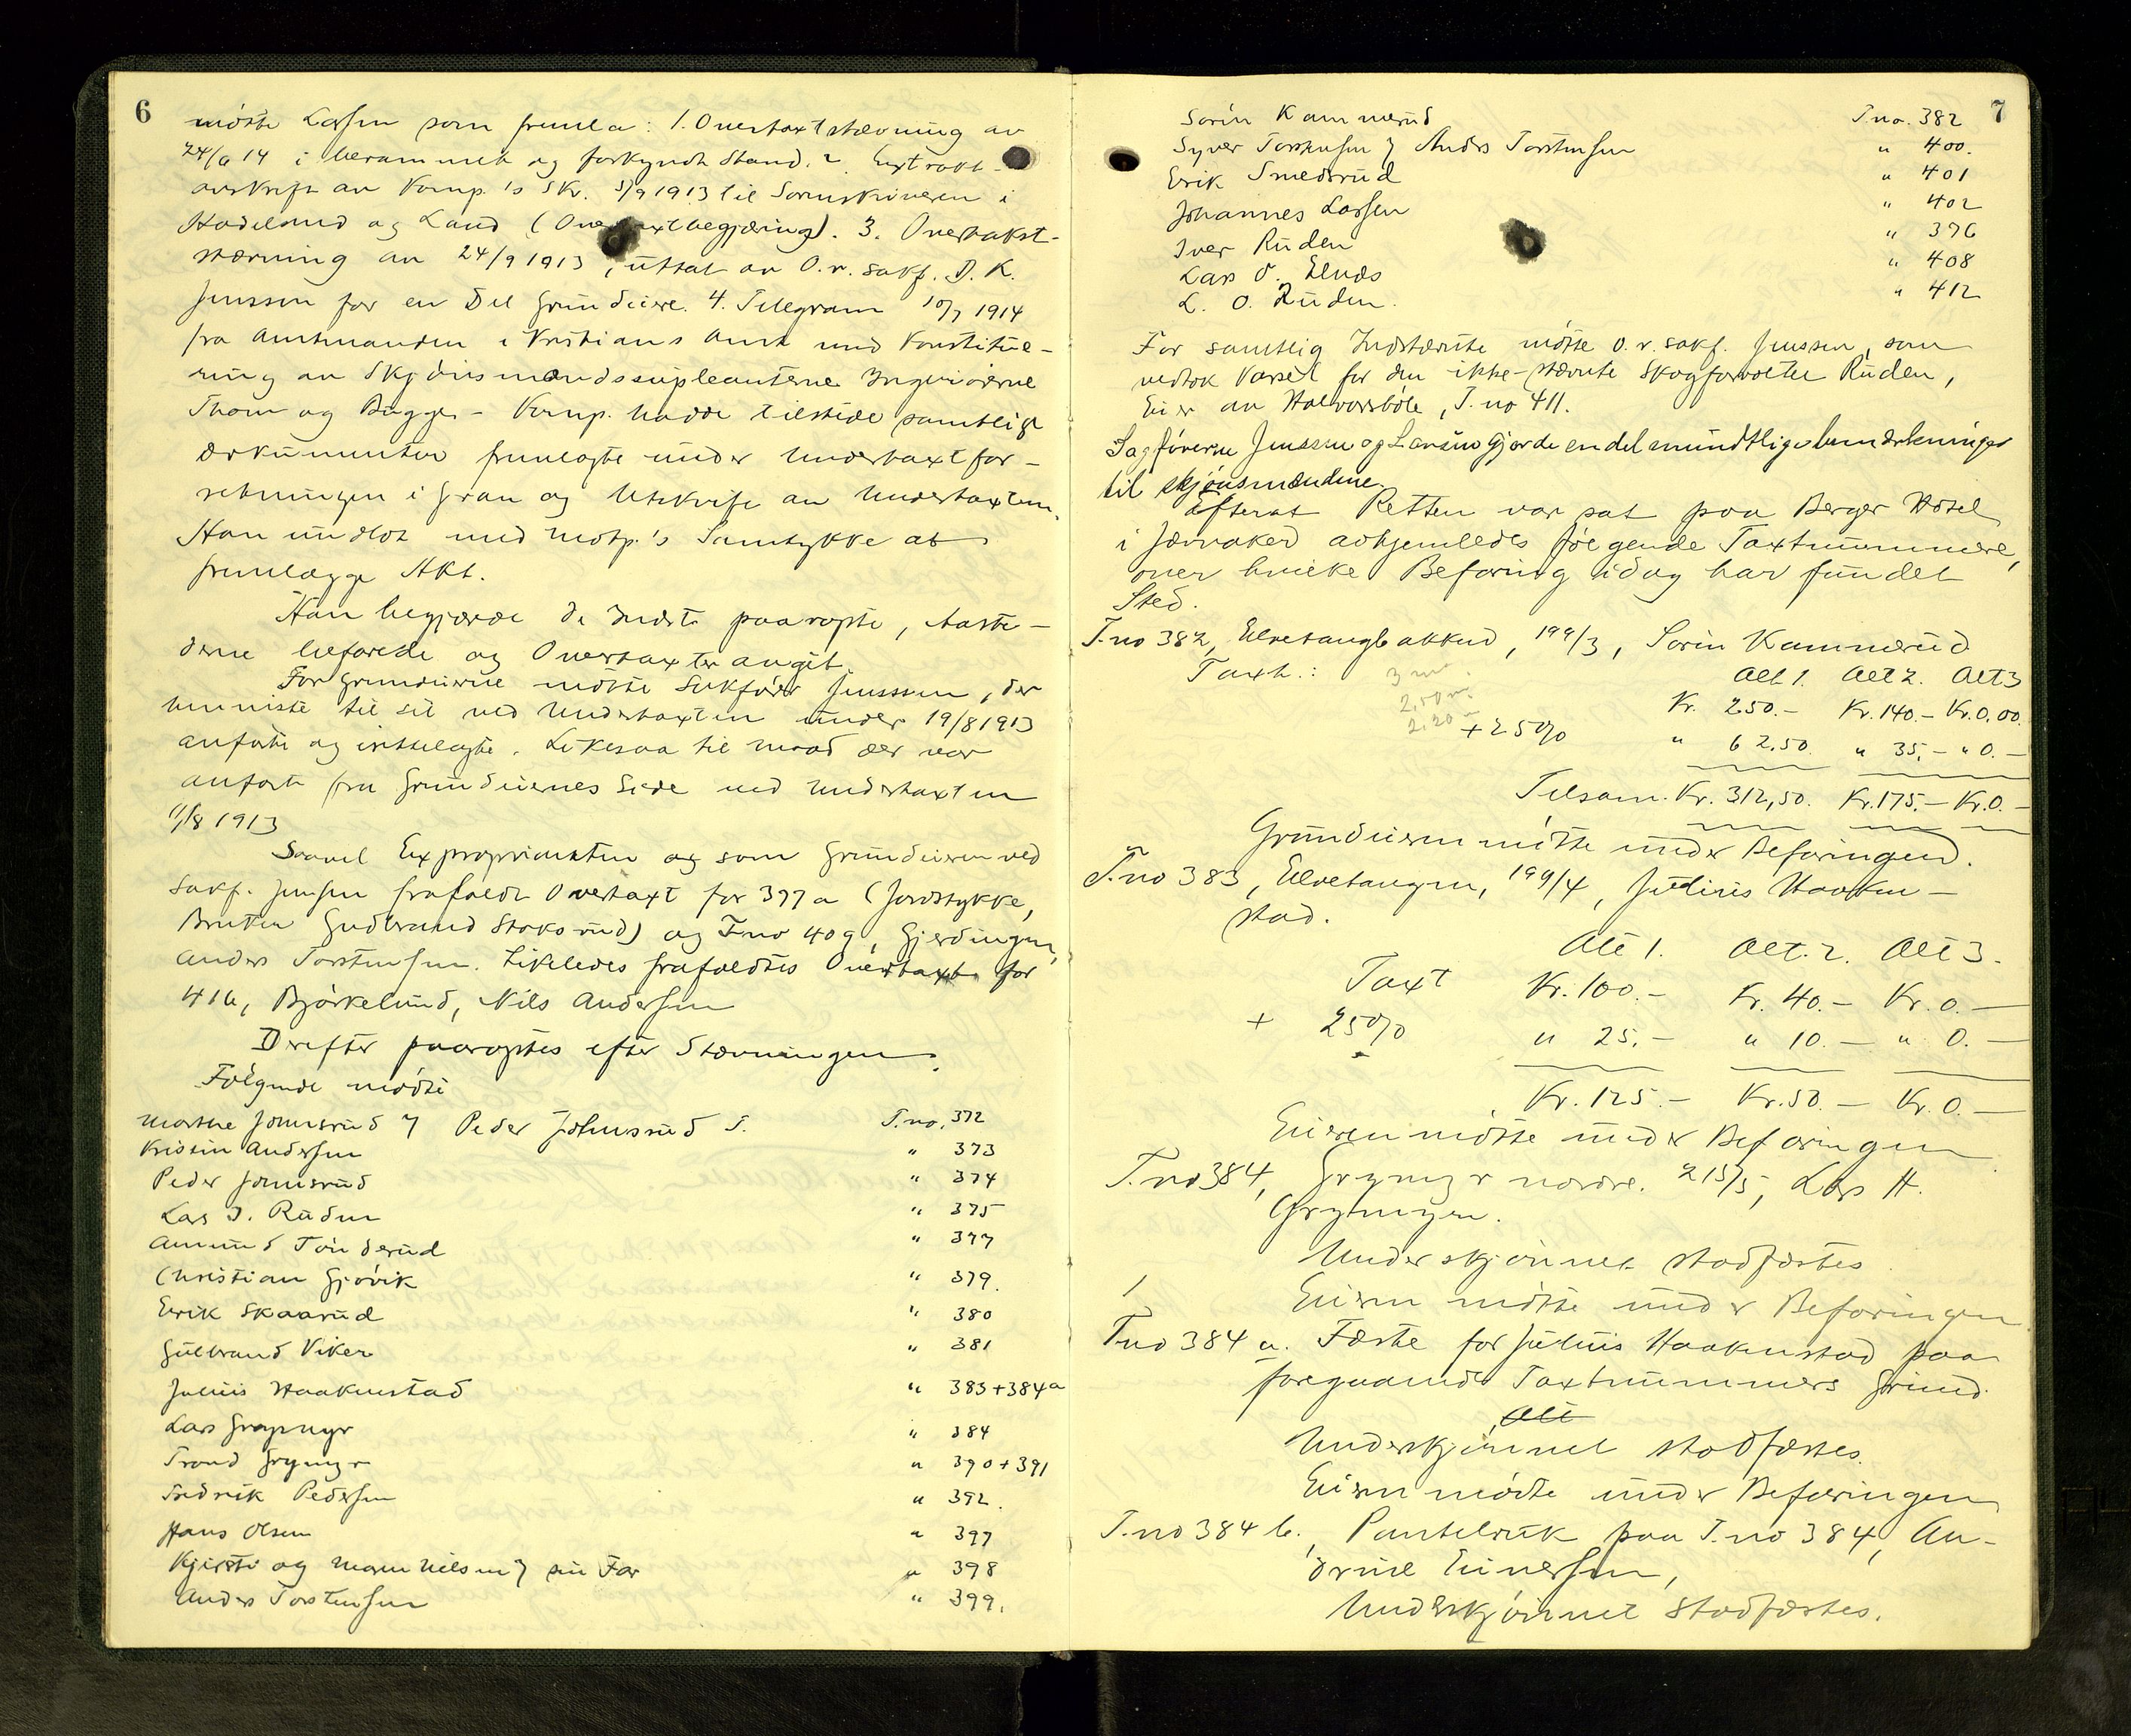 6
mödte Larsen som fremla: 1. Overtaxtstævning av
24/6 14 i berammet og forkyndt Stand. 2. Extrakt-
avskrift av Komp.'s Skr. 5/9 1913 til Sorenskriveren i
Hadeland og Land (Overtaxtbegjæring). 3. Overtakst-
stævning av 24/9 1913, uttat av O.r. sakf. D. K.
Jenssen for en Del Grundeiere. 4. Telegram 10/7 1914
fra Amtmanden i Kristians Amt med Konstitue-
ring av Skjönsmandssupleanterne Ingeniörerne
Thom og Bugge - Komp. hadde tilstede samtlige
Dokumenter fremlagte under Undertaxtfor-
retningen i Gran og Utskrift av Undertaxten.
Han undlot med Motp.'s Samtykke at
fremlægge Akt.
Han begjærde de Indst. paaropte, Aaste-
derne befarede og Overtaxter avgit.
For grundeierne mötte Sakförer Jenssen, der
henviste til sit ved Undertaxten under 19/8 1913
anförte og irettelagte. Likesaa til hvad der var
anfört fra Grundeiernes Side ved Undertaxten
11/8 1913
Saavel Exproprianten og som Grundeieren ved
Sakf. Jensen frafaldt Overtaxt for 377 a (Jordstykke,
Bruken Gudbrand Stoksrud) og T.no 409, Gjerdingen,
Anders Torstensen. Likeledes frafaldtes Overtaxt for
416, Björkelund, Nils Andersen
Derefter paaroptes efter Stævningen.
Følgende mödte
Marthe Johnsrud v Peder Johnsrud T. T.no. 372
Kristin Andersen " 373
Peder Johnsrud " 374
Lars J. Ruden " 375
Amund Tönderud " 377
Christian Gjövik " 379.
Erik Skaarud " 380
Gulbrand Viker " 381
Julius Haakenstad " 383+384a
Lars Grymyr " 384
Trond Grymyr " 390+391
Fredrik Pedersen " 392.
Hans Olsen " 397
Kjersti og Maren Nilsen v sin Far " 398
Anders Torstensen " 399.
7
Sørin Kammerud T.no. 382
Syver Torstensen v Anders Torstensen " 400.
Erik Smedsrud " 401
Johannes Larsen " 402
Iver Ruden " 376
Lars O. Elnæs " 408
L. O. Ruden. " 412
For samtlig Indstævnte mötte O.r. sakf. Jenssen, som
vedtok Varsel for den ikke-stævnte Skogforvalter Ruden,
Eier av Halvorsböle, T.no 411.
Sagförerne Jenssen og Larsen gjorde en del mundtlige bemærkninger
til skjönsmændene.
Efterat Retten var sat paa Berger Hotel
i Jævnaker avhjemledes følgende Taxtnummere,
over hvilke Befaring idag har fundet
Sted.
T.no 382, Elvetangbakken, 199/3, Sorin Kammerud
Taxt.: 3 m. Alt 1. Alt 2. Alt 3
2,50 m. Kr. 250.- Kr. 140.- Kr. 0,00.
2,20 +25% " 62,50. " 35,- " 0.-
Tilsam. Kr. 312,50. Kr. 175.- Kr. 0.-
Grundeieren mötte under Befaringen.
T.no 383, Elvetangen, 199/4, Julius Haaken-
stad.
Alt 1. Alt. 2. Alt 3.
Taxt Kr. 100.- Kr. 40.- Kr. 0.-
+ 25% " 25.- " 10.- " 0.-
Kr. 125.- Kr. 50.- Kr. 0.-
Eieren mötte under Befaringen
T.no 384, Grymyr nordre. 215/5, Lars H.
Grymyr.
Underskjönnet stadfæstes.
Eieren mötte under Befaringen
T.no 384 a. Fæste for Julius Haakenstad paa
foregaaende Taxtnummers Grund.
Alt
Underskjönnet stadfæstes.
Eieren mödte under Befaringen
T.no 384 b., Pantebruk paa T.no 384, An-
drine Einersen,
Underskjönnet stadfæstes.